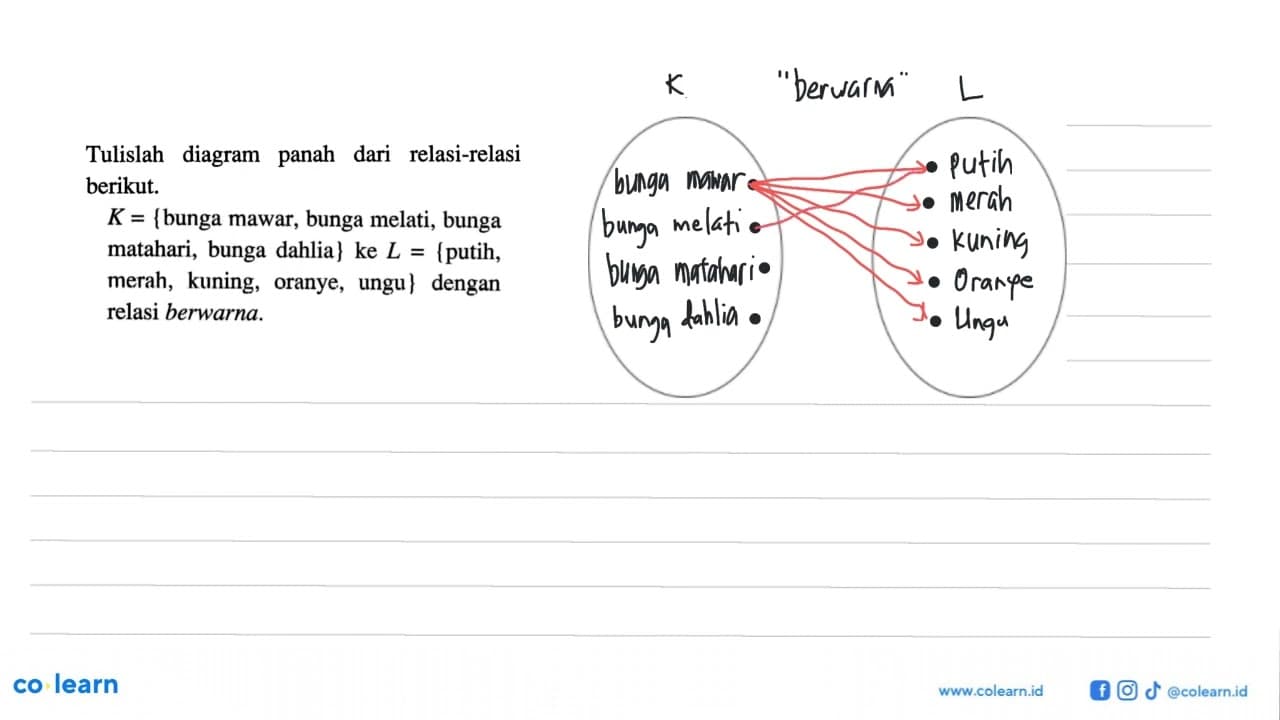 K "berwarna" L
Tulislah diagram panah dari relasi-relasi
berikut.
K = {bunga mawar, bunga melati, bunga
matahari, bunga dahlia} ke L = {putih,
merah, kuning, oranye, ungu} dengan
relasi berwarna.
bunga mawar
bunga melati
bunga matahari
bunga dahlia
putih
merah
kuning
Oranye
Ungu
co learn
www.colearn.id
@colearn.id